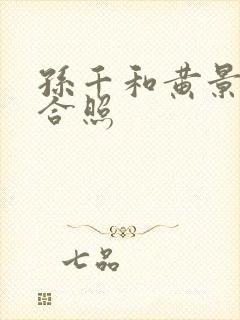 孫千和黄景
合照
七品